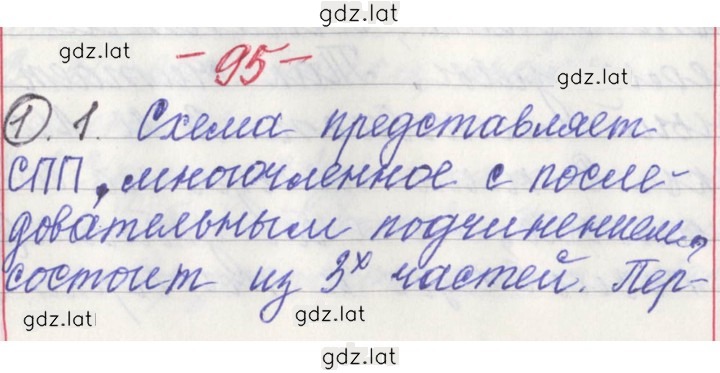 gdz.lat
gdz.lat
- 95 -
gdz.lat
1. 1. Схема представляет
СПП, многочленное с после-
довательным подчинением,
состоит из 3х частей. Пер-
gdz.lat
gdz.lat
gdz.lat